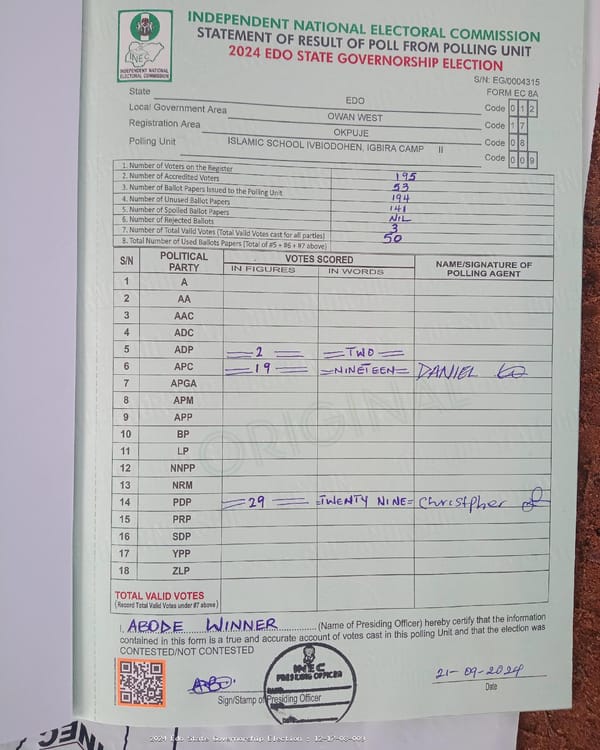 INDEPENDENT NATIONAL ELECTORAL COMMISSION
STATEMENT OF RESULT OF POLL FROM POLLING UNIT
2024 EDO STATE GOVERNORSHIP ELECTION
INEC
INDEPENDENT NATIONAL
ELECTORAL COMMISSION
S/N: EG/0004315
FORM EC 8A
State EDO Code 0 1 2
Local Government Area OWAN WEST Code 1 7
Registration Area OKPUJE Code 0 8
Polling Unit ISLAMIC SCHOOL IVBIODOHEN, IGBIRA CAMP II Code 0 0 9
1. Number of Voters on the Register 195
2. Number of Accredited Voters 53
3. Number of Ballot Papers Issued to the Polling Unit 194
4. Number of Unused Ballot Papers 141
5. Number of Spoiled Ballot Papers NIL
6. Number of Rejected Ballots 3
7. Number of Total Valid Votes (Total Valid Votes cast for all parties) 50
8. Total Number of Used Ballots Papers (Total of #5 + #6 + #7 above)
S/N POLITICAL PARTY VOTES SCORED NAME/SIGNATURE OF POLLING AGENT
IN FIGURES IN WORDS
1 A
2 AA
3 AAC
4 ADC
5 ADP 2 TWO
6 APC 19 NINETEEN DANIEL
7 APGA
8 APM
9 APP
10 BP
11 LP
12 NNPP
13 NRM
14 PDP 29 TWENTY NINE Christpher
15 PRP
16 SDP
17 YPP
18 ZLP
ORIGINAL
TOTAL VALID VOTES
(Record Total Valid Votes under #7 above)
I, ABODE WINNER (Name of Presiding Officer) hereby certify that the information
contained in this form is a true and accurate account of votes cast in this polling Unit and that the election was
CONTESTED/NOT CONTESTED
INEC
PRESIDING OFFICER
Sign/Stamp of Presiding Officer
21-09-2024
Date
INEC
2024 Edo State Governorship Election - 12-17-08-009